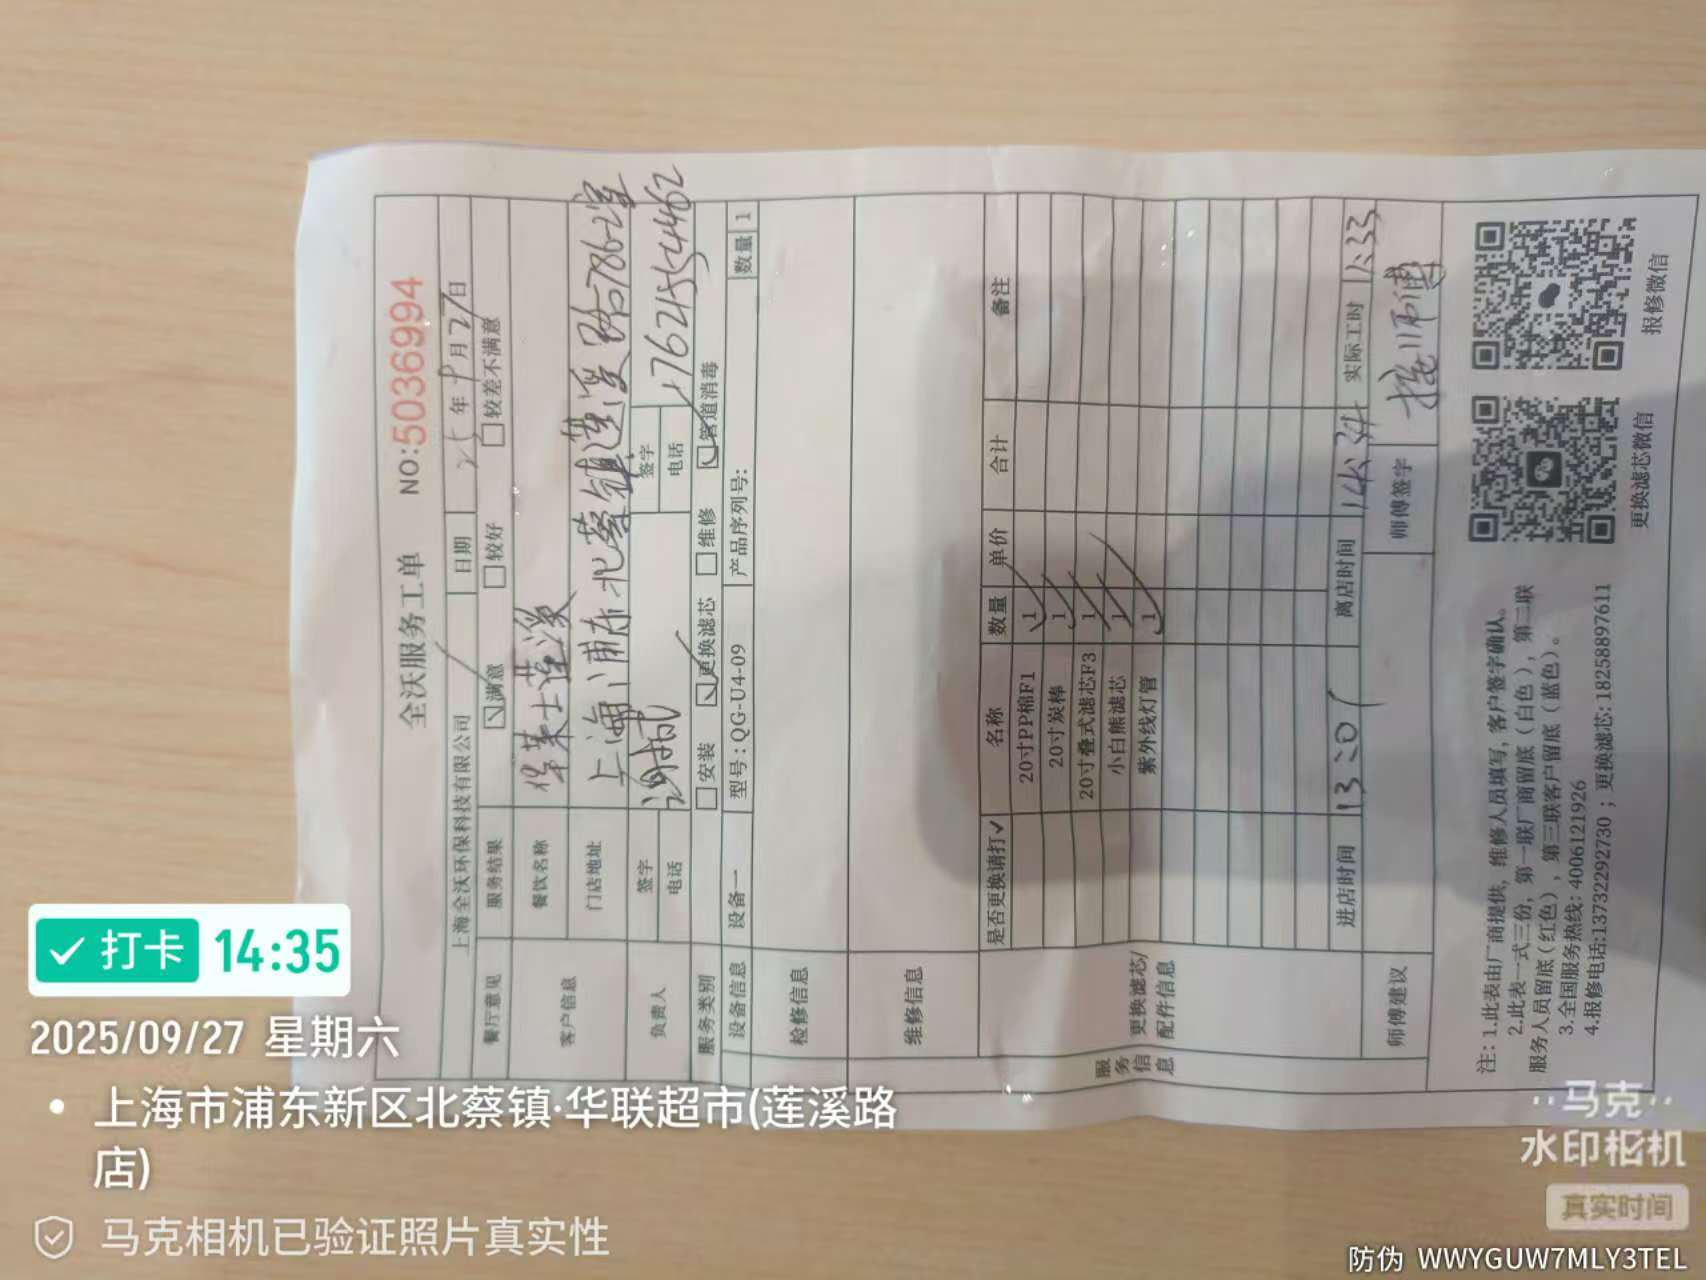 全沃服务工单
NO:5036994
上海全沃环保科技有限公司 日期 25年9月27日
餐厅意见 服务结果 ☑满意 □较好 □较差不满意
客户信息 餐饮名称 莲溪
门店地址 上海浦东北蔡镇莲溪路786-1室
负责人 签字 签字
电话 电话 17621554462
服务类别 □安装 ☑更换滤芯 □维修 ☑管道消毒
设备信息 设备一 型号:QG-U4-09 产品序列号: 数量 1
检修信息
维修信息
服务信息
更换滤芯/配件信息
是否更换请打✓ 名称 数量 单价 合计 备注
20寸PP棉F1 1
20寸炭棒 1
20寸叠式滤芯F3 1
小白熊滤芯 1
紫外线灯管 1
进店时间 离店时间 实际工时
师傅建议 师傅签字 师傅
注:1.此表由厂商提供,维修人员填写,客户签字确认。
2.此表一式三份,第一联厂商留底(白色),第二联
服务人员留底(红色),第三联客户留底(蓝色)。
3.全国服务热线:4006121926
4.报修电话:13732292730;更换滤芯:18258897611
更换滤芯微信 报修微信
打卡 14:35
2025/09/27 星期六
上海市浦东新区北蔡镇·华联超市(莲溪路
店)
马克相机已验证照片真实性
马克
水印相机
真实时间
防伪 WWYGUW7MLY3TEL